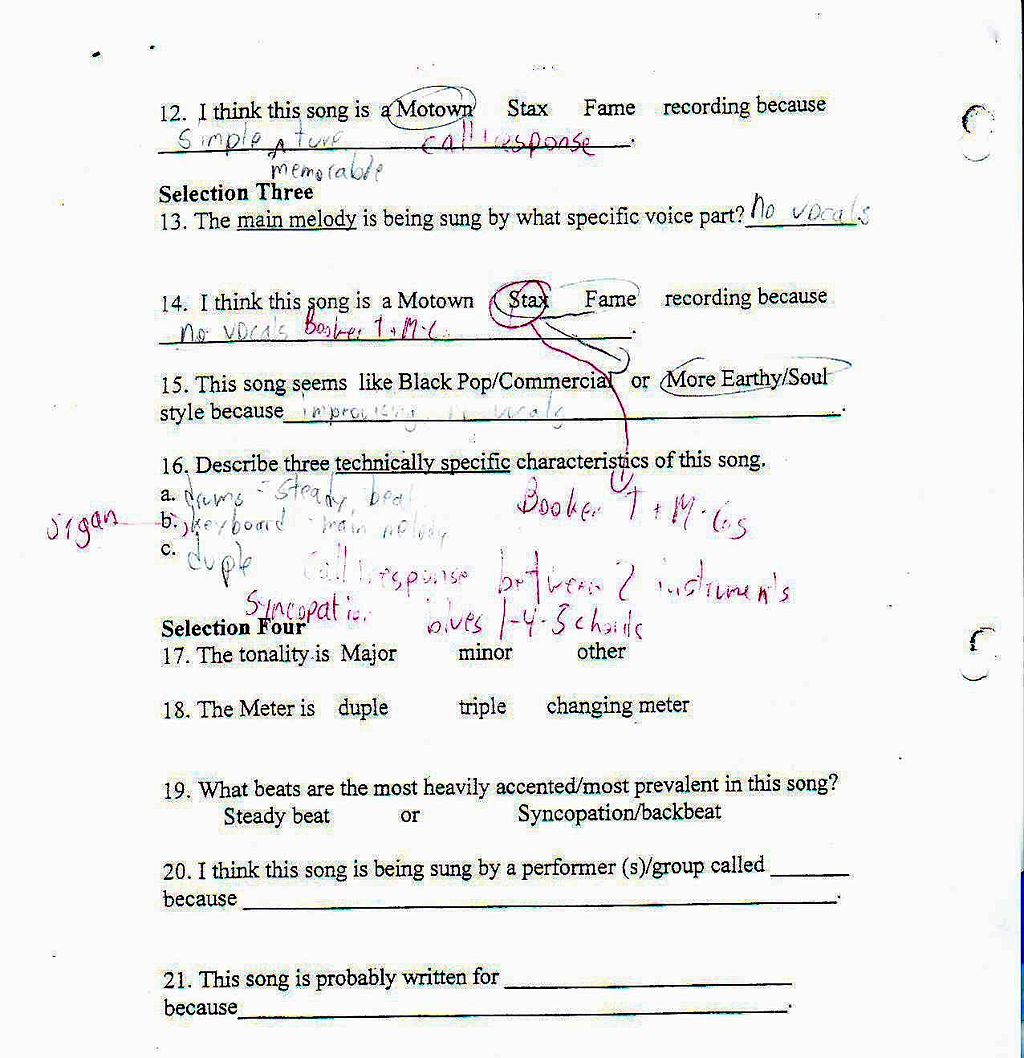 12. I think this song is a Motown Stax Fame recording because
Simple ^ tune call response.
memorable
Selection Three
13. The main melody is being sung by what specific voice part? No vocals
14. I think this song is a Motown Stax Fame recording because
no vocals Booker T + M.G.
15. This song seems like Black Pop/Commercial or More Earthy/Soul
style because improvising n vocals.
16. Describe three technically specific characteristics of this song.
a. drums - steady beat Booker T + M.Gs
organ b. keyboard - main melody
c. duple Call response between 2 instruments
Syncopation blues 1-4-5 chords
Selection Four
17. The tonality is Major minor other
18. The Meter is duple triple changing meter
19. What beats are the most heavily accented/most prevalent in this song?
Steady beat or Syncopation/backbeat
20. I think this song is being sung by a performer (s)/group called ______
because ______.
21. This song is probably written for ______
because ______.